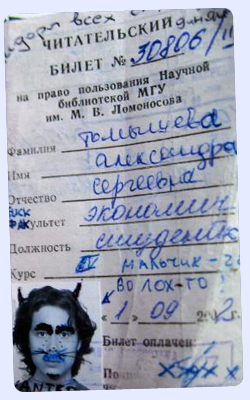 всех
ЧИТАТЕЛЬСКИЙ
БИЛЕТ № 30806/11
на право пользования Научной
библиотекой МГУ
им. М. В. Ломоносова
Фамилия
Имя Александра
Отчество Сергеевна
Факультет экономич
Должность студентк
Курс IV мальчик-
ВО ЛОХ-ТО
«1» 09
Билет оплачен: